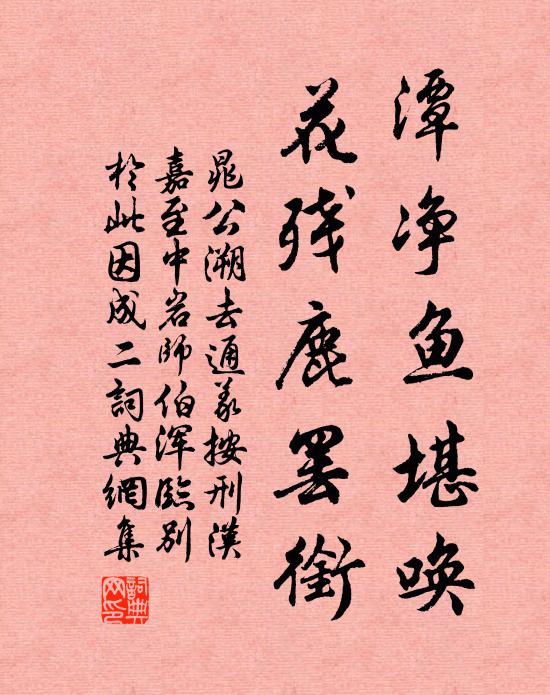 潭净鱼堪唤
花残鹿罢衔
晁公溯去通义按刑汉
嘉至中岩师伯浑临别
於此因成二詞典網集
詞典网印